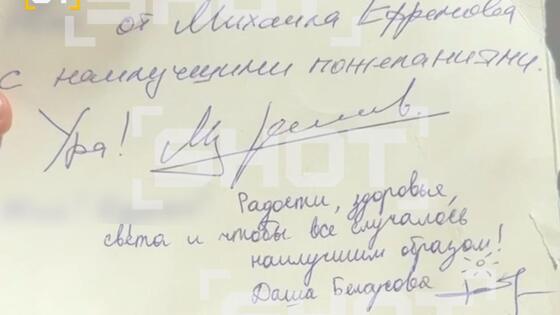 от Михаила Ефремова
с наилучшими пожеланиями.
Ура!
Радости, здоровья,
света и чтобы все случалось
наилучшим образом!
Даша Белоусова
SHOT